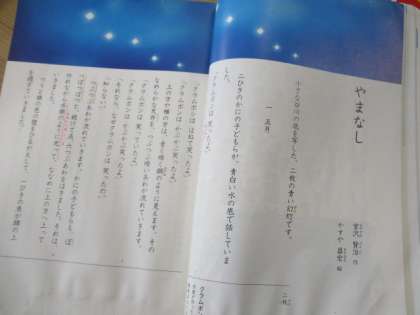 やまなし
宮沢 賢治 作
かすや 昌宏 絵
小さな谷川の底を写した、二枚の青い幻灯です。
一 五月
二ひきのかにの子どもらが、青白い水の底で話していま
した。
「クラムボンは 笑ったよ。」
「クラムボンは かぷかぷ笑ったよ。」
「クラムボンは はねて笑ったよ。」
「クラムボンは かぷかぷ笑ったよ。」
上の方や横の方は、青く暗く鋼のように見えます。その
なめらかな天井を、つぶつぶ暗いあわが流れていきます。
「クラムボンは 笑っていたよ。」
「クラムボンは かぷかぷ笑ったよ。」
「それなら、なぜクラムボンは 笑ったの。」
「知らない。」
つぶつぶあわが流れていきます。かにの子どもらも、ぽ
つぽつぽつと、続けて五、六つぶあわをはきました。それは、
ゆれながら水銀のように光って、ななめに上の方へ上って
いきました。
つうと銀の色の腹をひるがえして、一ぴきの魚が頭の上
を過ぎていきました。
クラムボン
二枚